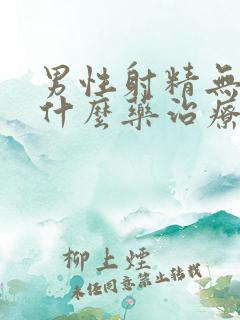 男性射精無
什麼藥治療
柳上煙
未经同意禁止转载